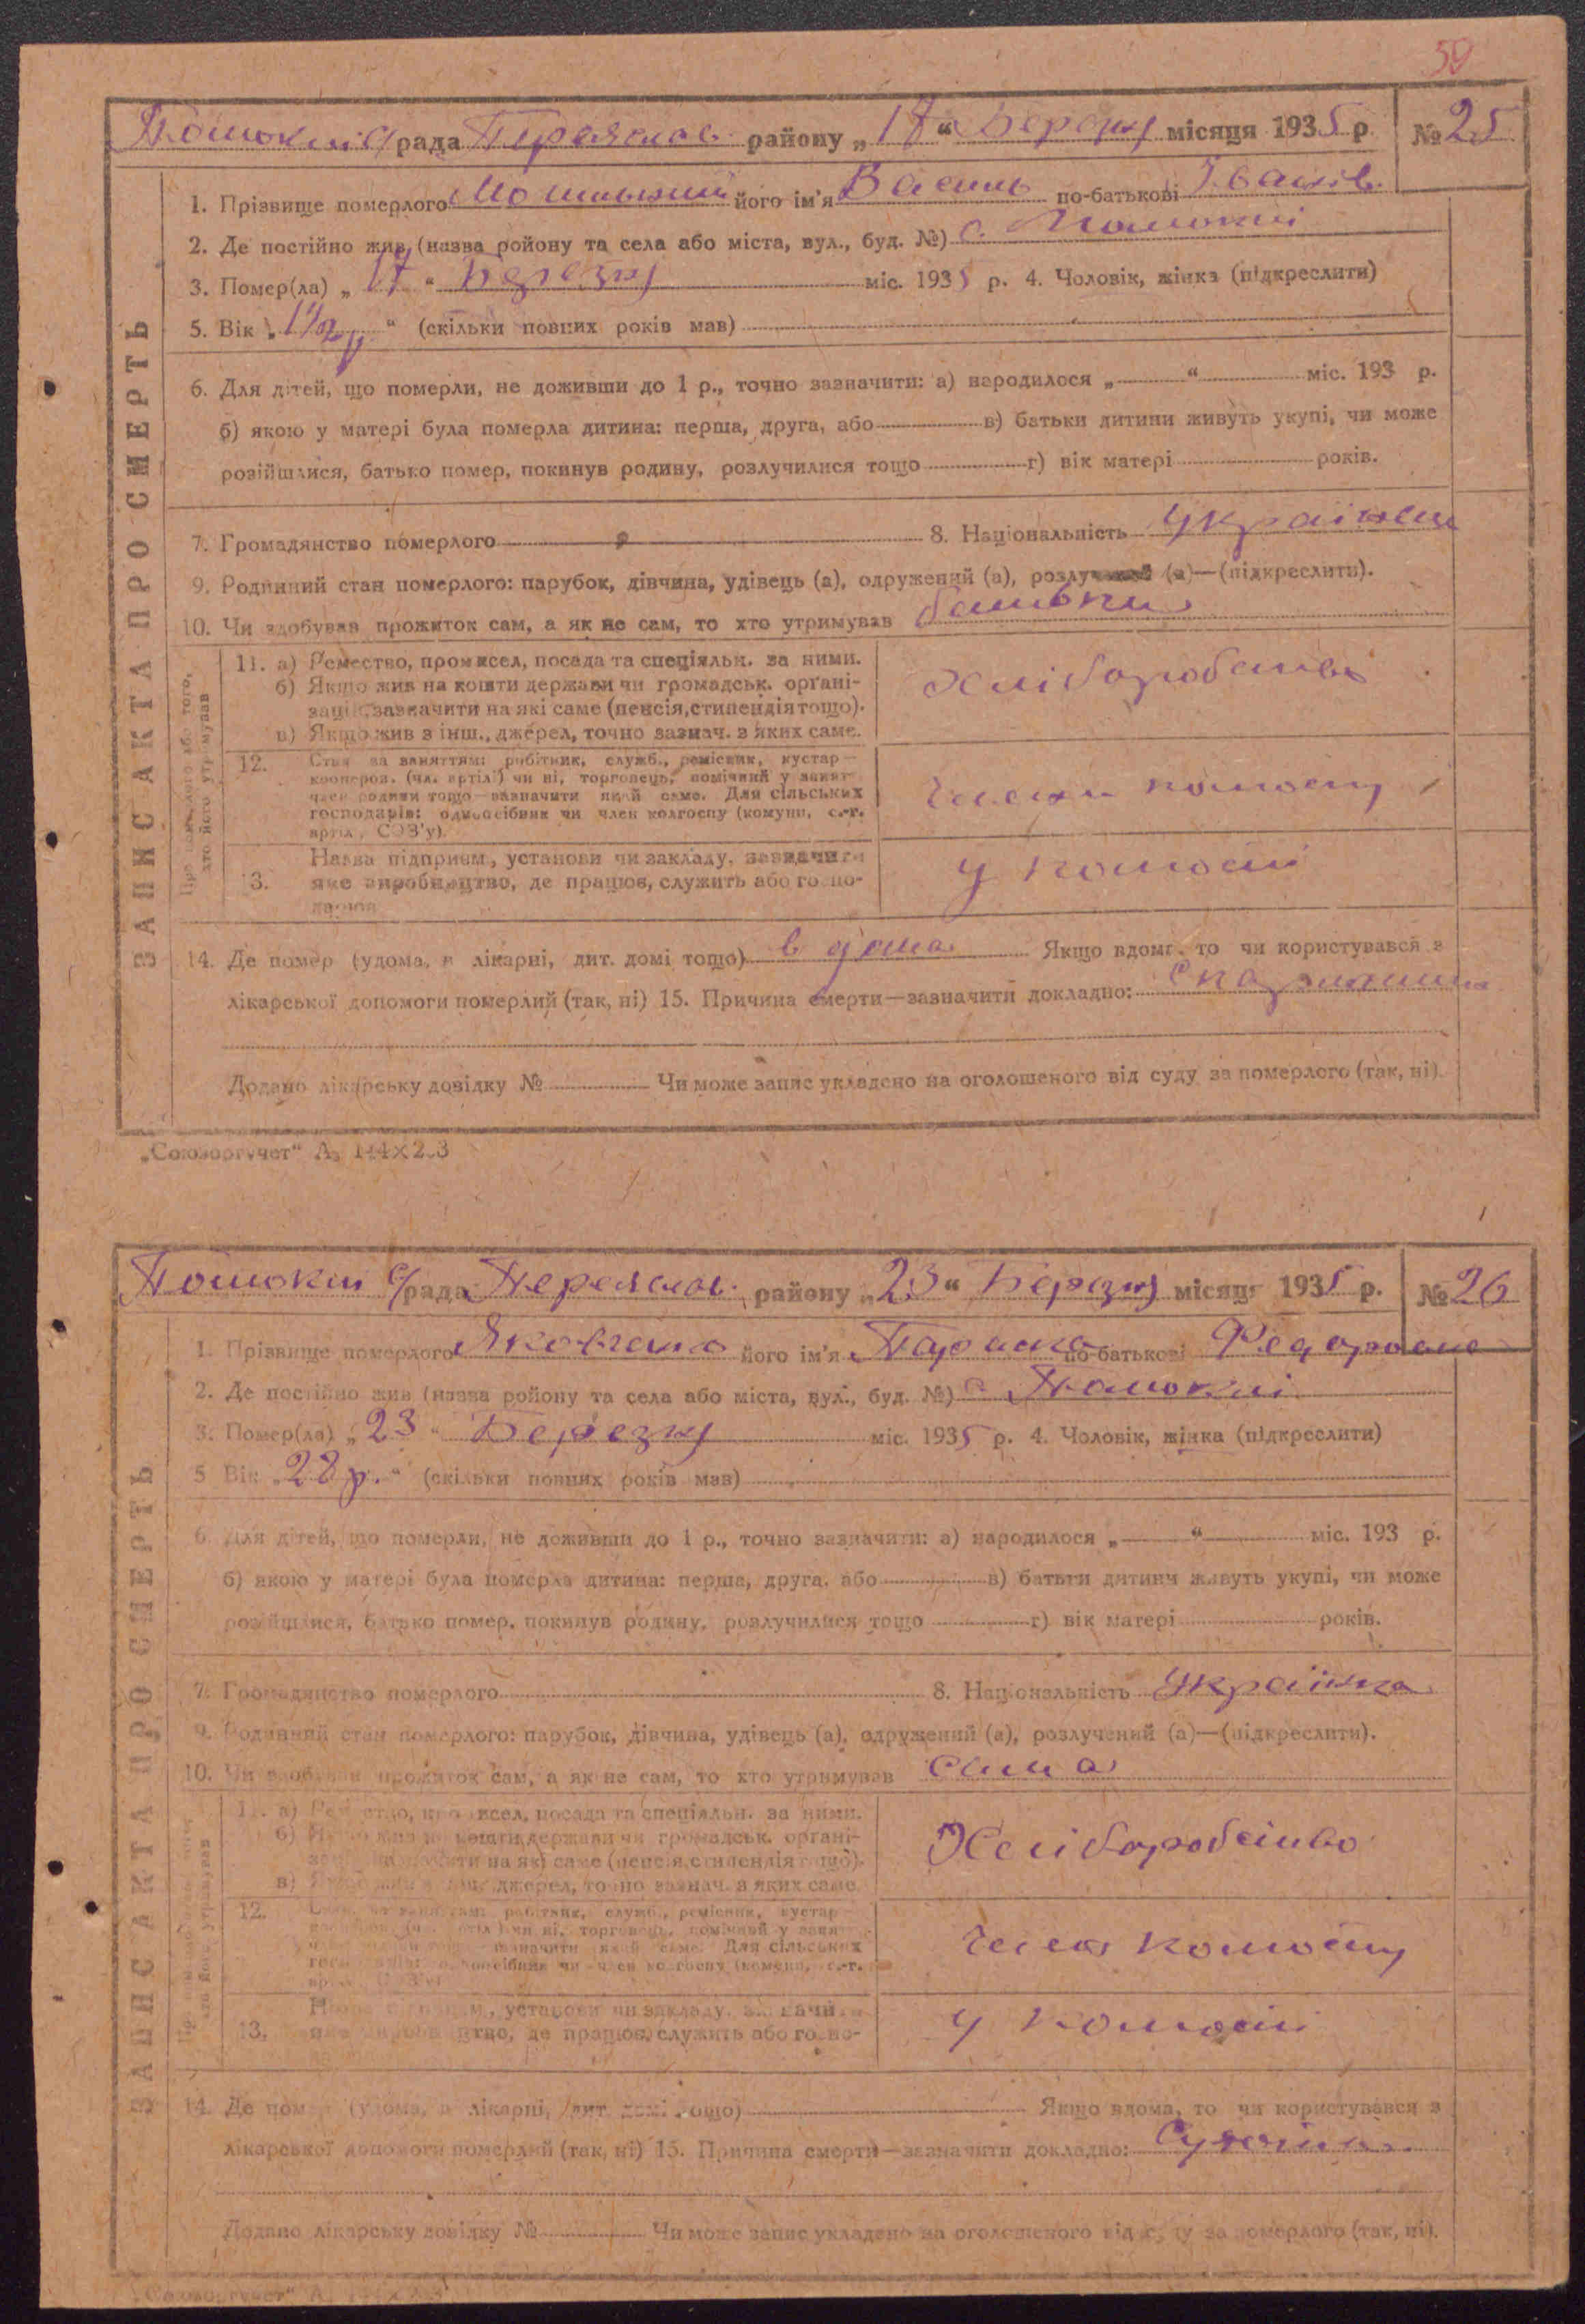 59
рада Переяслав. району „17“ Березня місяця 1935 р. № 25
ЗАПИС АКТА ПРО СМЕРТЬ
1. Прізвище померлого його ім'я Василь по-батькові Іванів.
2. Де постійно жив, (назва ройону та села або міста, вул., буд. №) с.
3. Помер(ла) „17“ Березня міс. 1935 р. 4. Чоловік, жінка (підкреслити)
5. Вік „1½ р“ (скільки повних років мав)
6. Для дітей, що померли, не доживши до 1 р., точно зазначити: а) народилося „ “ міс. 193 р.
б) якою у матері була померла дитина: перша, друга, або в) батьки дитини живуть укупі, чи може
розійшлися, батько помер, покинув родину, розлучилися тощо г) вік матері років.
7. Громадянство померлого 8. Національність Українец
9. Родинний стан померлого: парубок, дівчина, удівець (а), одружений (а), розлучений (а)—(підкреслити).
10. Чи здобував прожиток сам, а як не сам, то хто утримував батьки
Про померлого або того, хто його утримував
11. а) Ремество, промисел, посада та спеціяльн. за ними.
б) Якщо жив на кошти держави чи громадськ. органі-
зації, зазначити на які саме (пенсія, стипендія тощо).
в) Якщо жив з інш., джерел, точно зазнач. з яких саме.
Хліборобство
12. Стан за заняттям: робітник, служб., ремісник, кустар—
кооперов. (чл. артілі) чи ні, торговець, помічний у занят.
член родини тощо—зазначити який саме. Для сільських
господарів: одноосібник чи член колгоспу (комуни, с.-г.
артіл., СОЗ'у).
Члени колгоспу
13. Назва підприєм., установи чи закладу, зазначити
яке виробництво, де працює, служить або госпо-
дарює
у колгоспі
14. Де помер (удома, в лікарні, дит. домі тощо) в дома Якщо вдома, то чи користувався з
лікарської допомоги померлий (так, ні) 15. Причина смерти—зазначити докладно: Скарлатина
Додано лікарську довідку № Чи може запис укладено на оголошеного від суду за померлого (так, ні).
„Союзоргучет“ А₅ 144×2.3
с/рада Переяслав. району „23“ Березня місяця 1935 р. № 26
ЗАПИС АКТА ПРО СМЕРТЬ
1. Прізвище померлого Яковченко його ім'я Параска по-батькові Федоровна
2. Де постійно жив (назва ройону та села або міста, вул., буд. №) с
3. Помер(ла) „23“ Березня міс. 1935 р. 4. Чоловік, жінка (підкреслити)
5 Вік „28 р.“ (скільки повних років мав)
6. Для дітей, що померли, не доживши до 1 р., точно зазначити: а) народилося „ “ міс. 193 р.
б) якою у матері була померла дитина: перша, друга, або в) батьки дитини живуть укупі, чи може
розійшлися, батько помер, покинув родину, розлучилися тощо г) вік матері років.
7. Громадянство померлого 8. Національність Українка
9. Родинний стан померлого: парубок, дівчина, удівець (а), одружений (а), розлучений (а)—(підкреслити).
10. Чи здобував прожиток сам, а як не сам, то хто утримував сама
11. а) Ремество, промисел, посада та спеціяльн. за ними.
б) Якщо жив на кошти держави чи громадськ. органі-
зації, зазначити на які саме (пенсія, стипендія тощо).
в) Якщо жив з інш., джерел, точно зазнач. з яких саме.
Хліборобство
12. Стан за заняттям: робітник, служб., ремісник, кустар—
торговець, помічний у занят.
зазначити який саме. Для сільських
господарів: одноосібник чи член колгоспу (комуни, с.-г.
Член колгоспу
13. Назва підприєм., установи чи закладу, зазначити
яке виробництво, де працює, служить або госпо-
у колгоспі
14. Де помер (удома, в лікарні, дит. домі тощо) Якщо вдома, то чи користувався з
лікарської допомоги померлий (так, ні) 15. Причина смерти—зазначити докладно:
Додано лікарську довідку № Чи може запис укладено на оголошеного від суду за померлого (так, ні).
„Союзоргучет“